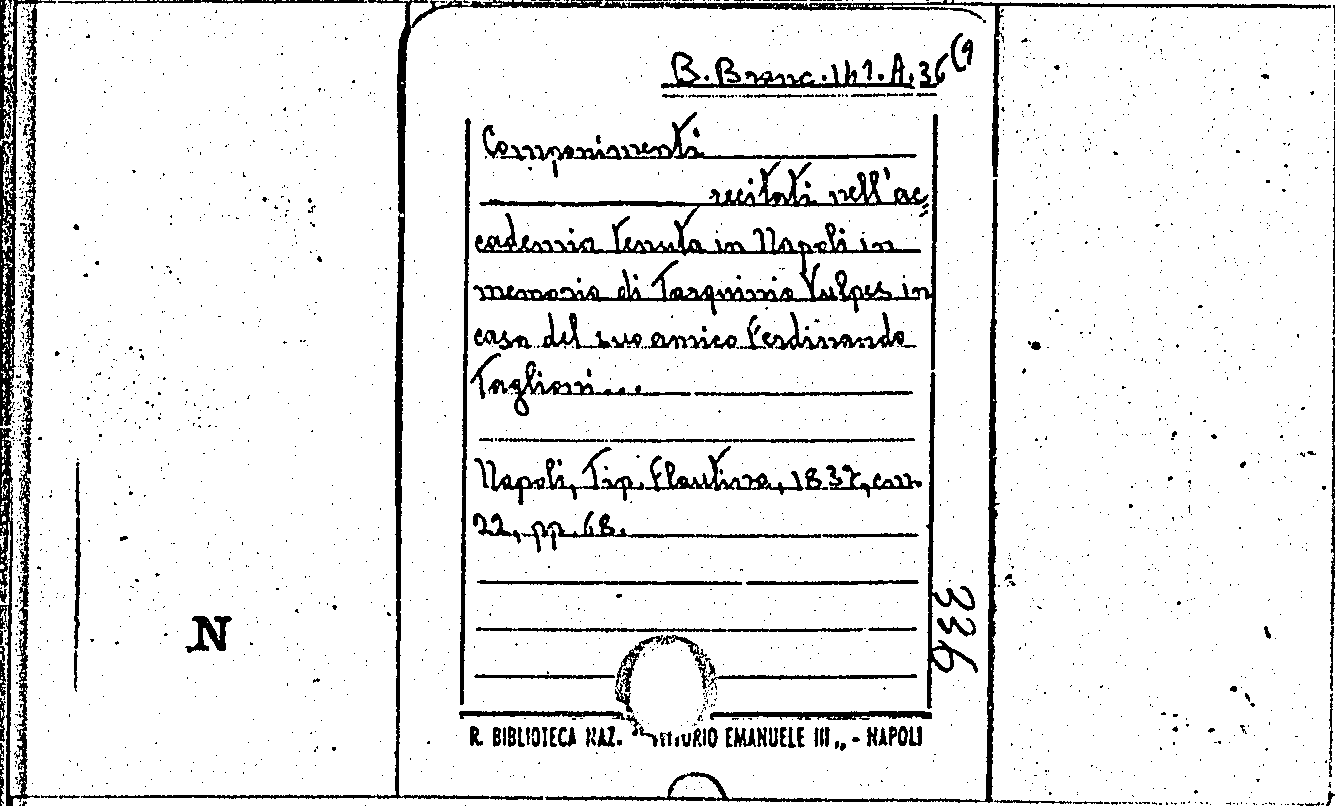 B. Branc. 141. A. 36 (9
Componimenti
recitati nell'ac=
cademia tenuta in Napoli in
memoria di Tarquinio Vulpes in
casa del suo amico Ferdinando
Taglioni...
Napoli, Tip. Flautina, 1837, cm.
22, pp. 68.
336
N
R. BIBLIOTECA NAZ. "VITTORIO EMANUELE III„ - NAPOLI